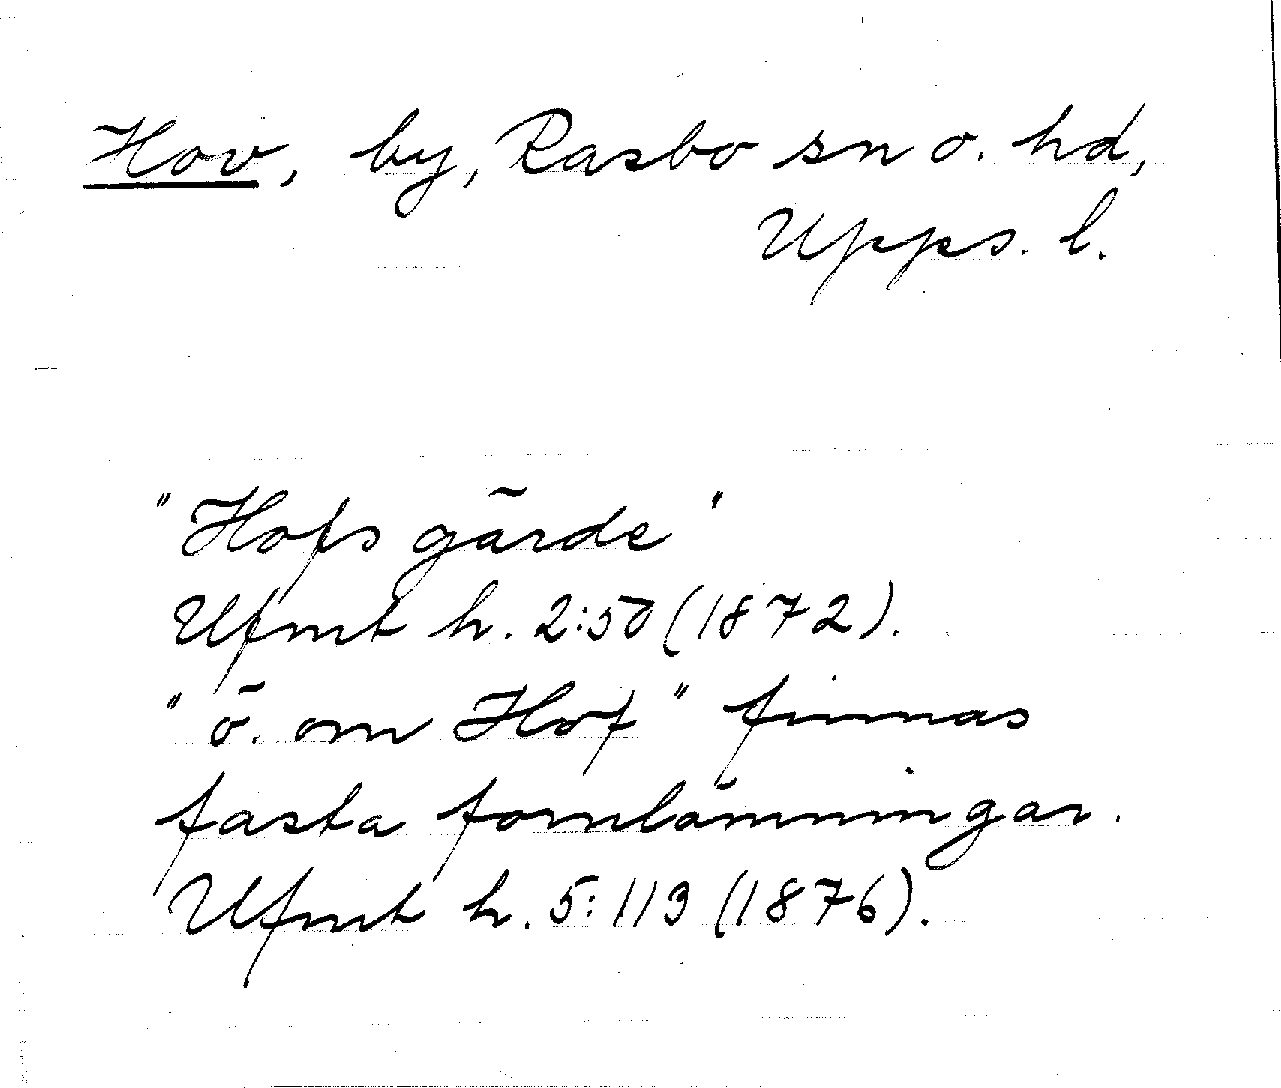 Hov, by, Rasbo sn o. hd,
Upps. l.
"Hofs gärde"
Ufmt h. 2:50 (1872).
"ö. om Hof" finnas
fasta fornlämningar.
Ufmt h. 5:113 (1876).